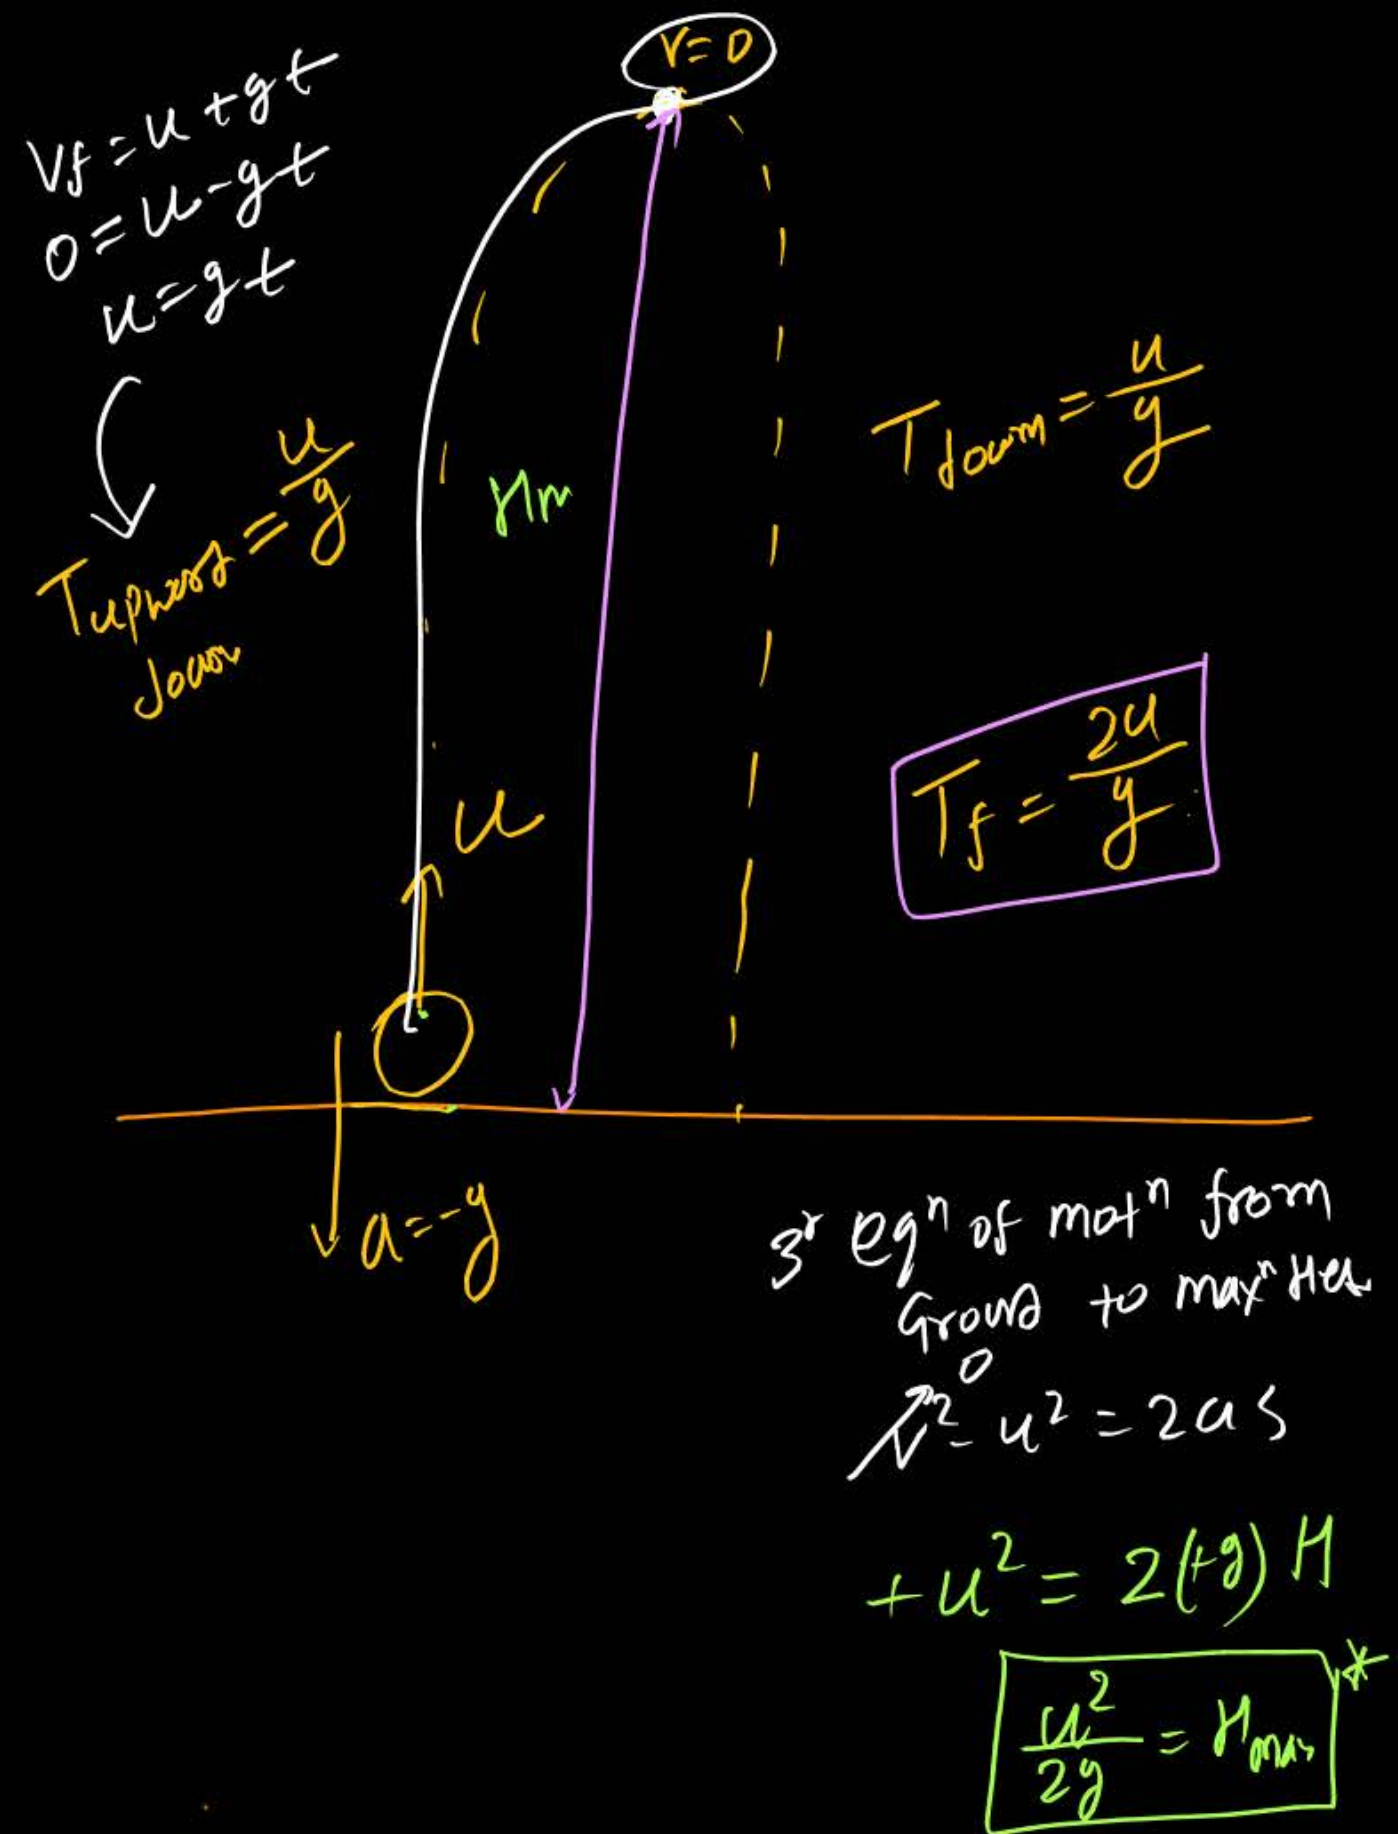 V=0
Vf = u + gt
0 = u - gt
u = gt
Tupward = u/g
down
Hm
Tdown = u/g
Tf = 2u/g
u
a = -g
3r eqⁿ of motⁿ from
Ground to maxⁿ
0
v² - u² = 2as
+u² = 2(+g) H
u²/2g = Hmax *